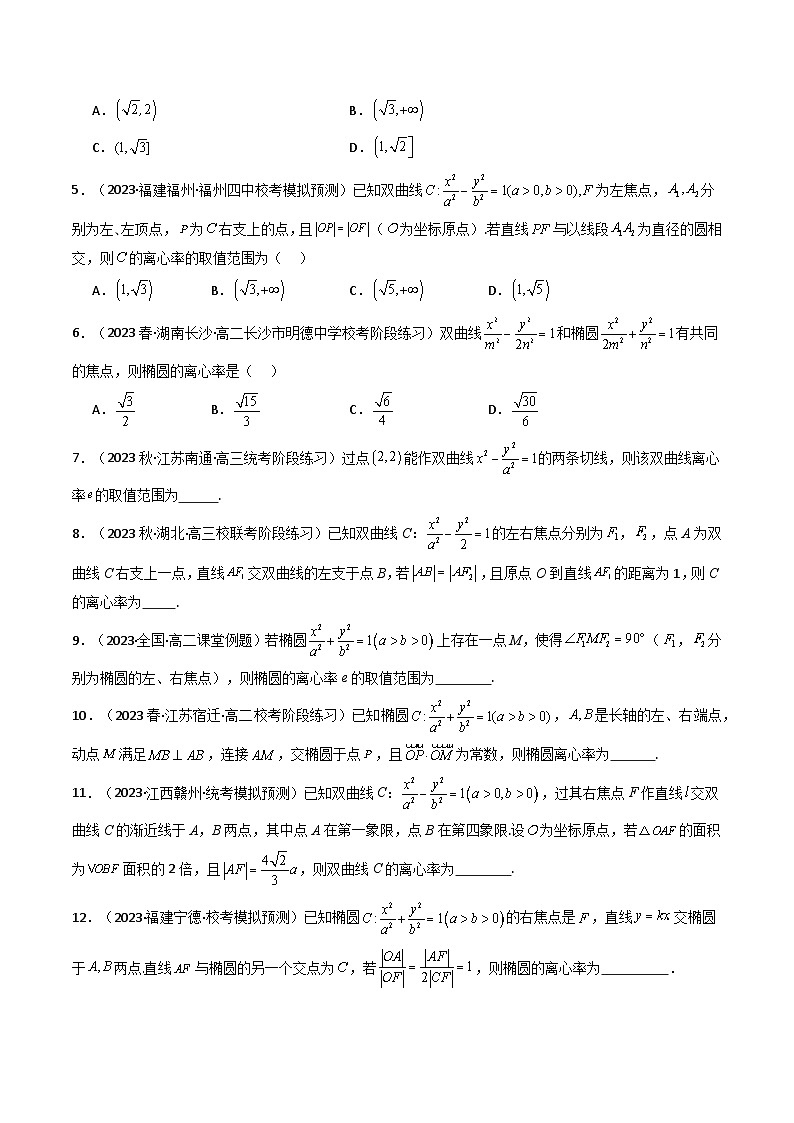 A.(√2,2) B.(√3,+∞)
C.(1,√3] D.(1,√2]
5.(2023·福建福州·福州四中校考模拟预测)已知双曲线C:x²/a²−y²/b²=1(a>0,b>0),F为左焦点,A₁,A₂分
别为左、左顶点,P为C右支上的点,且|OP|=|OF|(O为坐标原点).若直线PF与以线段A₁A₂为直径的圆相
交,则C的离心率的取值范围为( )
A.(1,√3) B.(√3,+∞) C.(√5,+∞) D.(1,√5)
6.(2023春·湖南长沙·高二长沙市明德中学校考阶段练习)双曲线x²/m²−y²/2n²=1和椭圆x²/2m²+y²/n²=1有共同
的焦点,则椭圆的离心率是( )
A.√3/2 B.√15/3 C.√6/4 D.√30/6
7.(2023秋·江苏南通·高三统考阶段练习)过点(2,2)能作双曲线x²−y²/a²=1的两条切线,则该双曲线离心
率e的取值范围为______.
8.(2023秋·湖北·高三校联考阶段练习)已知双曲线C:x²/a²−y²/2=1的左右焦点分别为F₁,F₂,点A为双
曲线C右支上一点,直线AF₁交双曲线的左支于点B,若|AB|=|AF₂|,且原点O到直线AF₁的距离为1,则C
的离心率为_____.
9.(2023·全国·高二课堂例题)若椭圆x²/a²+y²/b²=1(a>b>0)上存在一点M,使得∠F₁MF₂=90°(F₁,F₂分
别为椭圆的左、右焦点),则椭圆的离心率e的取值范围为________.
10.(2023春·江苏宿迁·高二校考阶段练习)已知椭圆C:x²/a²+y²/b²=1(a>b>0),A,B是长轴的左、右端点,
动点M满足MB⊥AB,连接AM,交椭圆于点P,且OP·OM为常数,则椭圆离心率为_______.
11.(2023·江西赣州·统考模拟预测)已知双曲线C:x²/a²−y²/b²=1(a>0,b>0),过其右焦点F作直线l交双
曲线C的渐近线于A,B两点,其中点A在第一象限,点B在第四象限.设O为坐标原点,若△OAF的面积
为VOBF面积的2倍,且|AF|=4√2/3a,则双曲线C的离心率为________.
12.(2023·福建宁德·校考模拟预测)已知椭圆C:x²/a²+y²/b²=1(a>b>0)的右焦点是F,直线y=kx交椭圆
于A,B两点.直线AF与椭圆的另一个交点为C,若|OA|/|OF|=|AF|/2|CF|=1,则椭圆的离心率为__________.